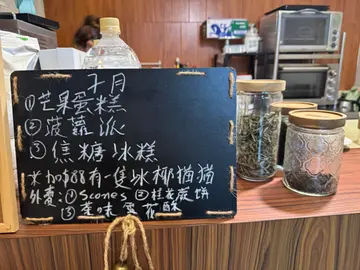 七月
①芒果蛋糕
②菠蘿派
③焦糖冰糕
※加$88有一隻冰椰猫猫
外賣:①Scones ②桂花鬆餅
③茶味雪花酥